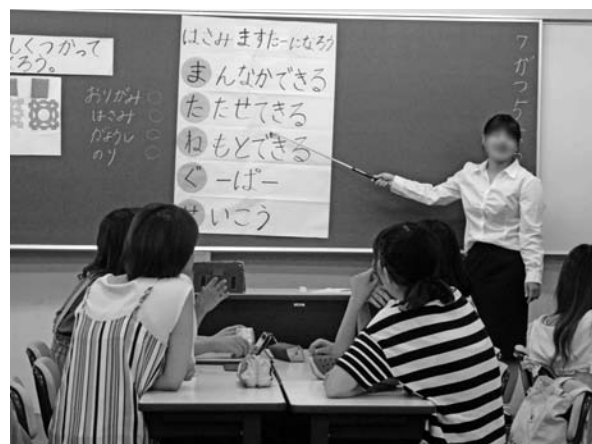 しくつかって
ろう。
おりがみ○
はさみ○
がようし○
のり○
はさみ ますたーになろう
まんなかできる
たたせてきる
ねもとできる
ぐーぱー
いこう
7がつ5